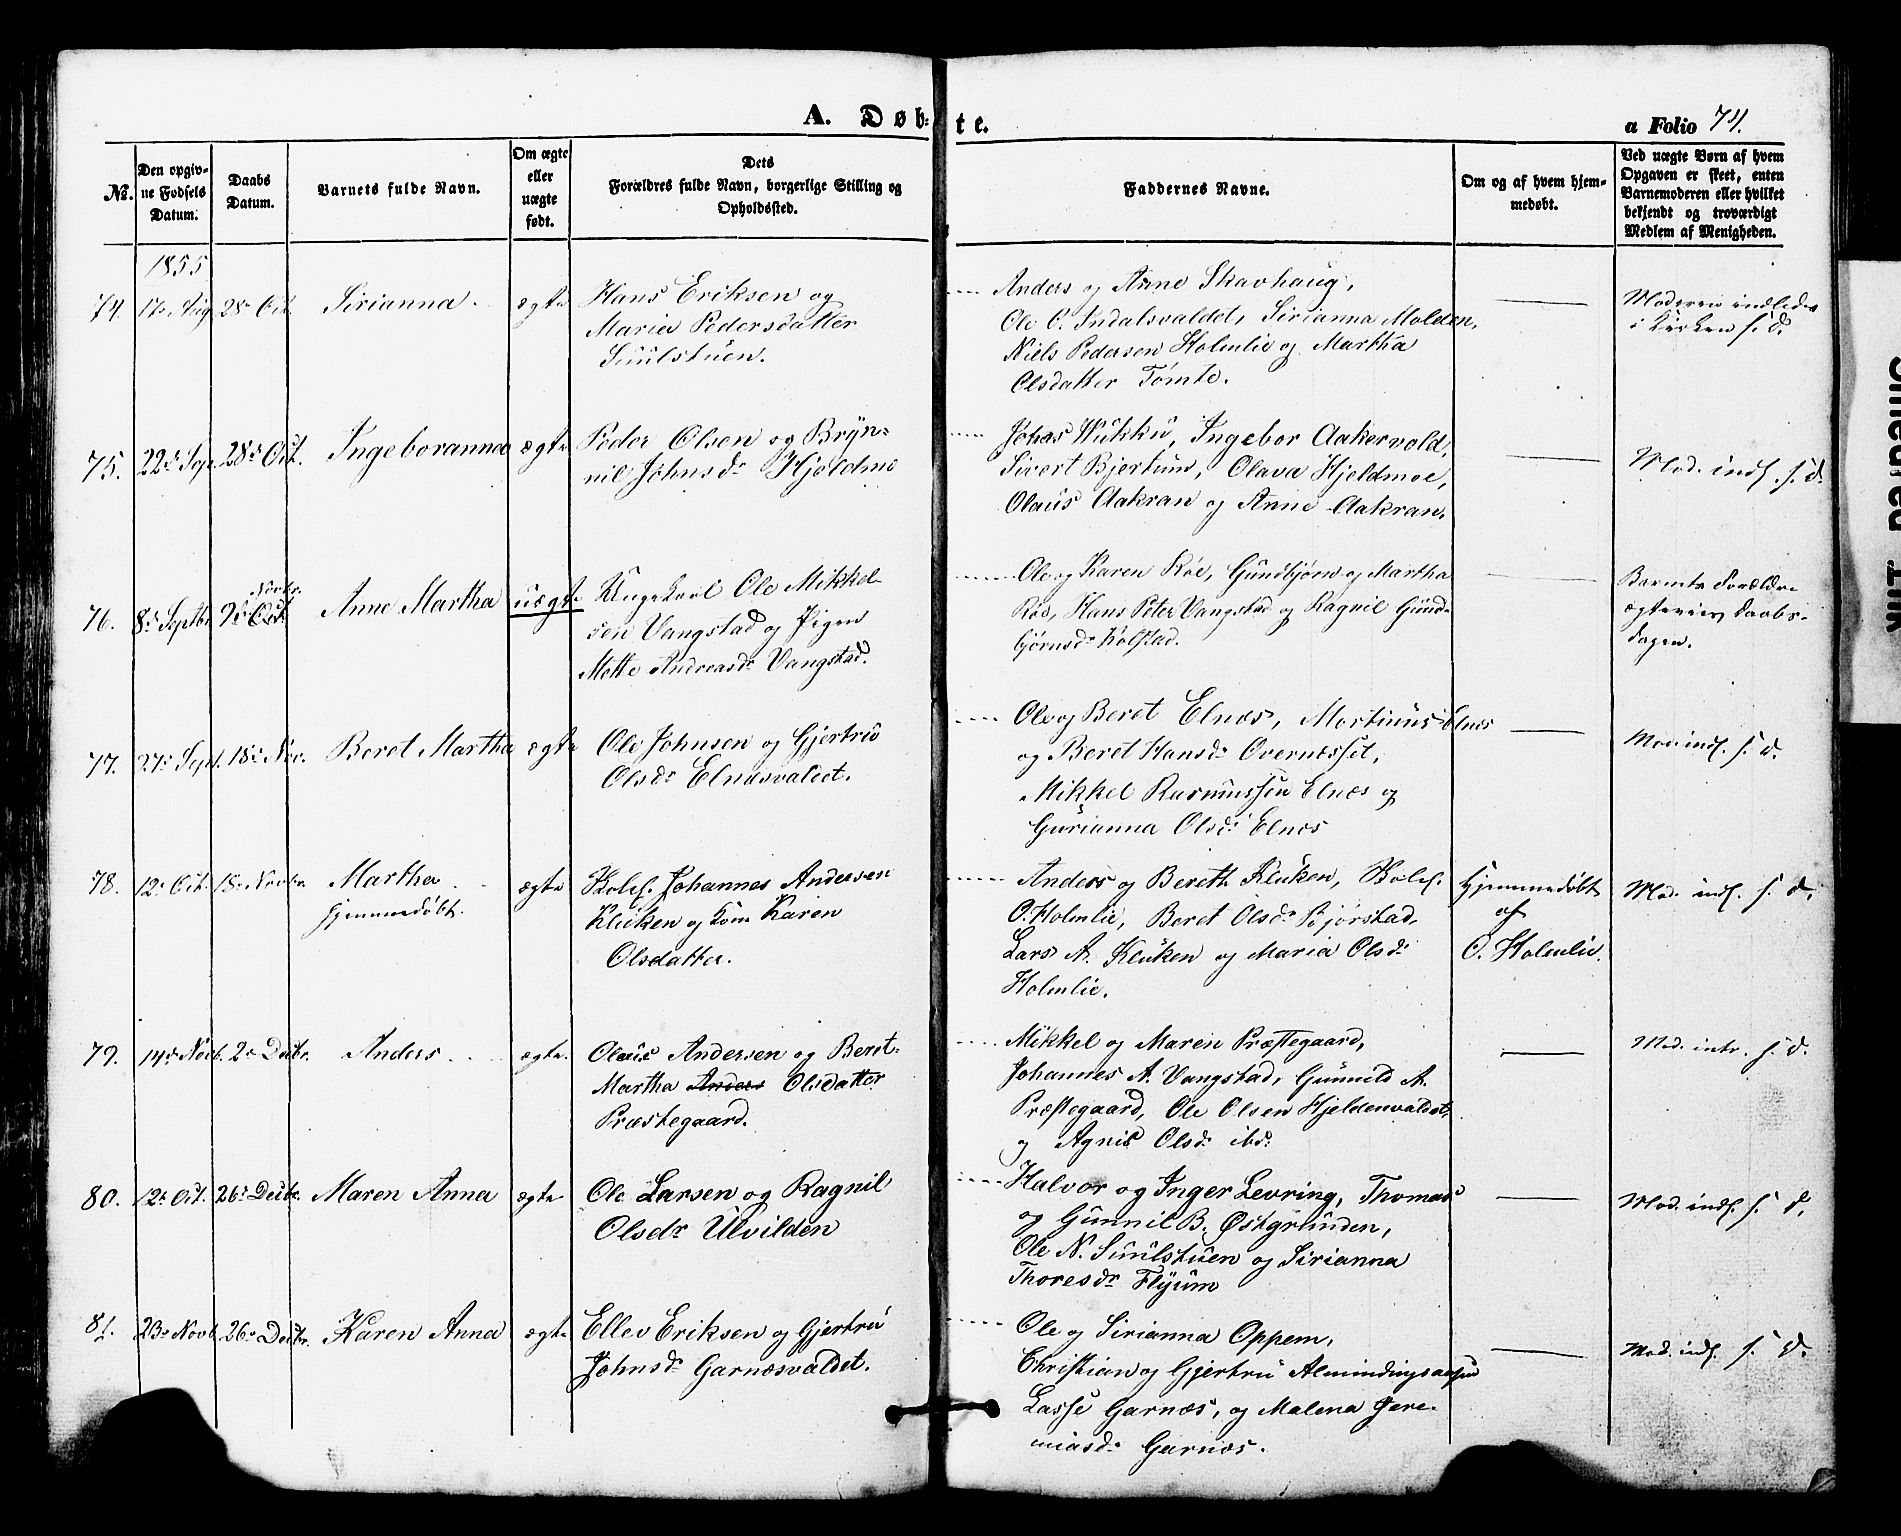 A. Døb=te.
a Folio 74.
No.
Den opgiv-
ne Fødsels
Datum.
Daabs
Datum.
Barnets fulde Navn.
Om ægte
eller
uægte
født.
Dets
Forældres fulde Navn, borgerlige Stilling og
Opholdssted.
Faddernes Navne.
Om og af hvem hjem-
medøbt.
Ved uægte Børn af hvem
Opgaven er skeet, enten
Barnemoderen eller hvilket
bekjendt og troværdigt
Medlem af Menigheden.
1855
74. 17de Aug 28de Oct. Sirianna ægte
Hans Eriksen og
Maria Pedersdatter
Suulstuen.
Anders og Anne Skavhaug,
Ole C. Indalsvaldet, Sirianna Molden,
Niels Pedersen Holmlie og Martha
Olsdatter Tømte.
Moderen indledes
i Kirken s. d.
75. 22de Sept. 28de Oct. Ingeboranna ægte
Peder Olsen og Bryn-
nil Johnsdr Hjeldmo
Johas Wukku, Ingebor Aakervold,
Sivert Bjertum, Olava Hjeldmoe,
Olaus Aakran og Anne Aakran.
Mod. indl. s. d.
76. 8de Septbr 9de Oct. Novbr. Anne Martha uægte
Ungekarl Ole Mikkel-
sen Vangstad og Pigen
Mette Andreasdr Vangstad.
Ole og Karen Roe, Gundbjørn og Martha
Roe, Hans Peter Vangstad og Ragnil Gund-
bjørnsdr Kolstad.
Barnets Forældre
ægteviev Daabs-
dagen.
77. 27de Sept. 18de Nov. Beret Martha ægte
Ole Johnsen og Gjertru
Olsdr Elnæsvaldet.
Ole og Beret Elnæs, Martinus Elnæs
og Beret Hansdr Overnæsset,
Mikkel Rasmussen Elnæs og
Gurianna Olsdr Elnæs
Mod indl. s. d.
78. 12de Oct. 18de Novbr. Martha
hjemmedøbt. ægte
Skolel. Johannes Andersen
Klüken og Kone Karen
Olsdatter.
Anders og Bereth Klüken, Skolel.
O. Holmlie, Beret Olsdr Bjørstad,
Lars A. Klüken og Maria Olsdr
Holmlie.
Hjemmedøbt
af
O. Holmlie.
Mod. indl. s. d.
79. 14de Novb. 2de Decbr. Anders ægte.
Olaus Andersen og Beret-
Martha Anders Olsdatter
Præstegaard.
Mikkel og Maren Præstegaard,
Johannes A. Vangstad, Gunnild A.
Præstegaard, Ole Olsen Hjeldenvaldet,
og Agnis Olsdr ibd.
Mod. intr. s. d.
80. 12te Oct. 26de Decbr. Maren Anna ægte
Ole Larsen og Ragnil
Olsdr Ulvilden
Halvor og Inger Levring, Thomas
og Gunnil B. Østgrunden,
Ole N. Suulstuen og Sirianna
Thoresdr Flyum
Mod. indl. s. d.
81. 23de Novb. 26de Decbr. Karen Anna ægte
Ellev Eriksen og Gjertru
Johnsdr Garnæsvaldet.
Ole og Sirianna Oppem,
Christian og Gjertru Almindingsaasen
Lasse Garnæs, og Malena Jere-
miasdr Garnæs.
Mod. indl. s. d.